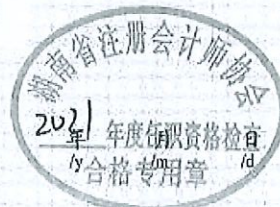 湖南省注册会计师协会
2021 年度任职资格检查
年 月 日
/y /m /d
合格专用章